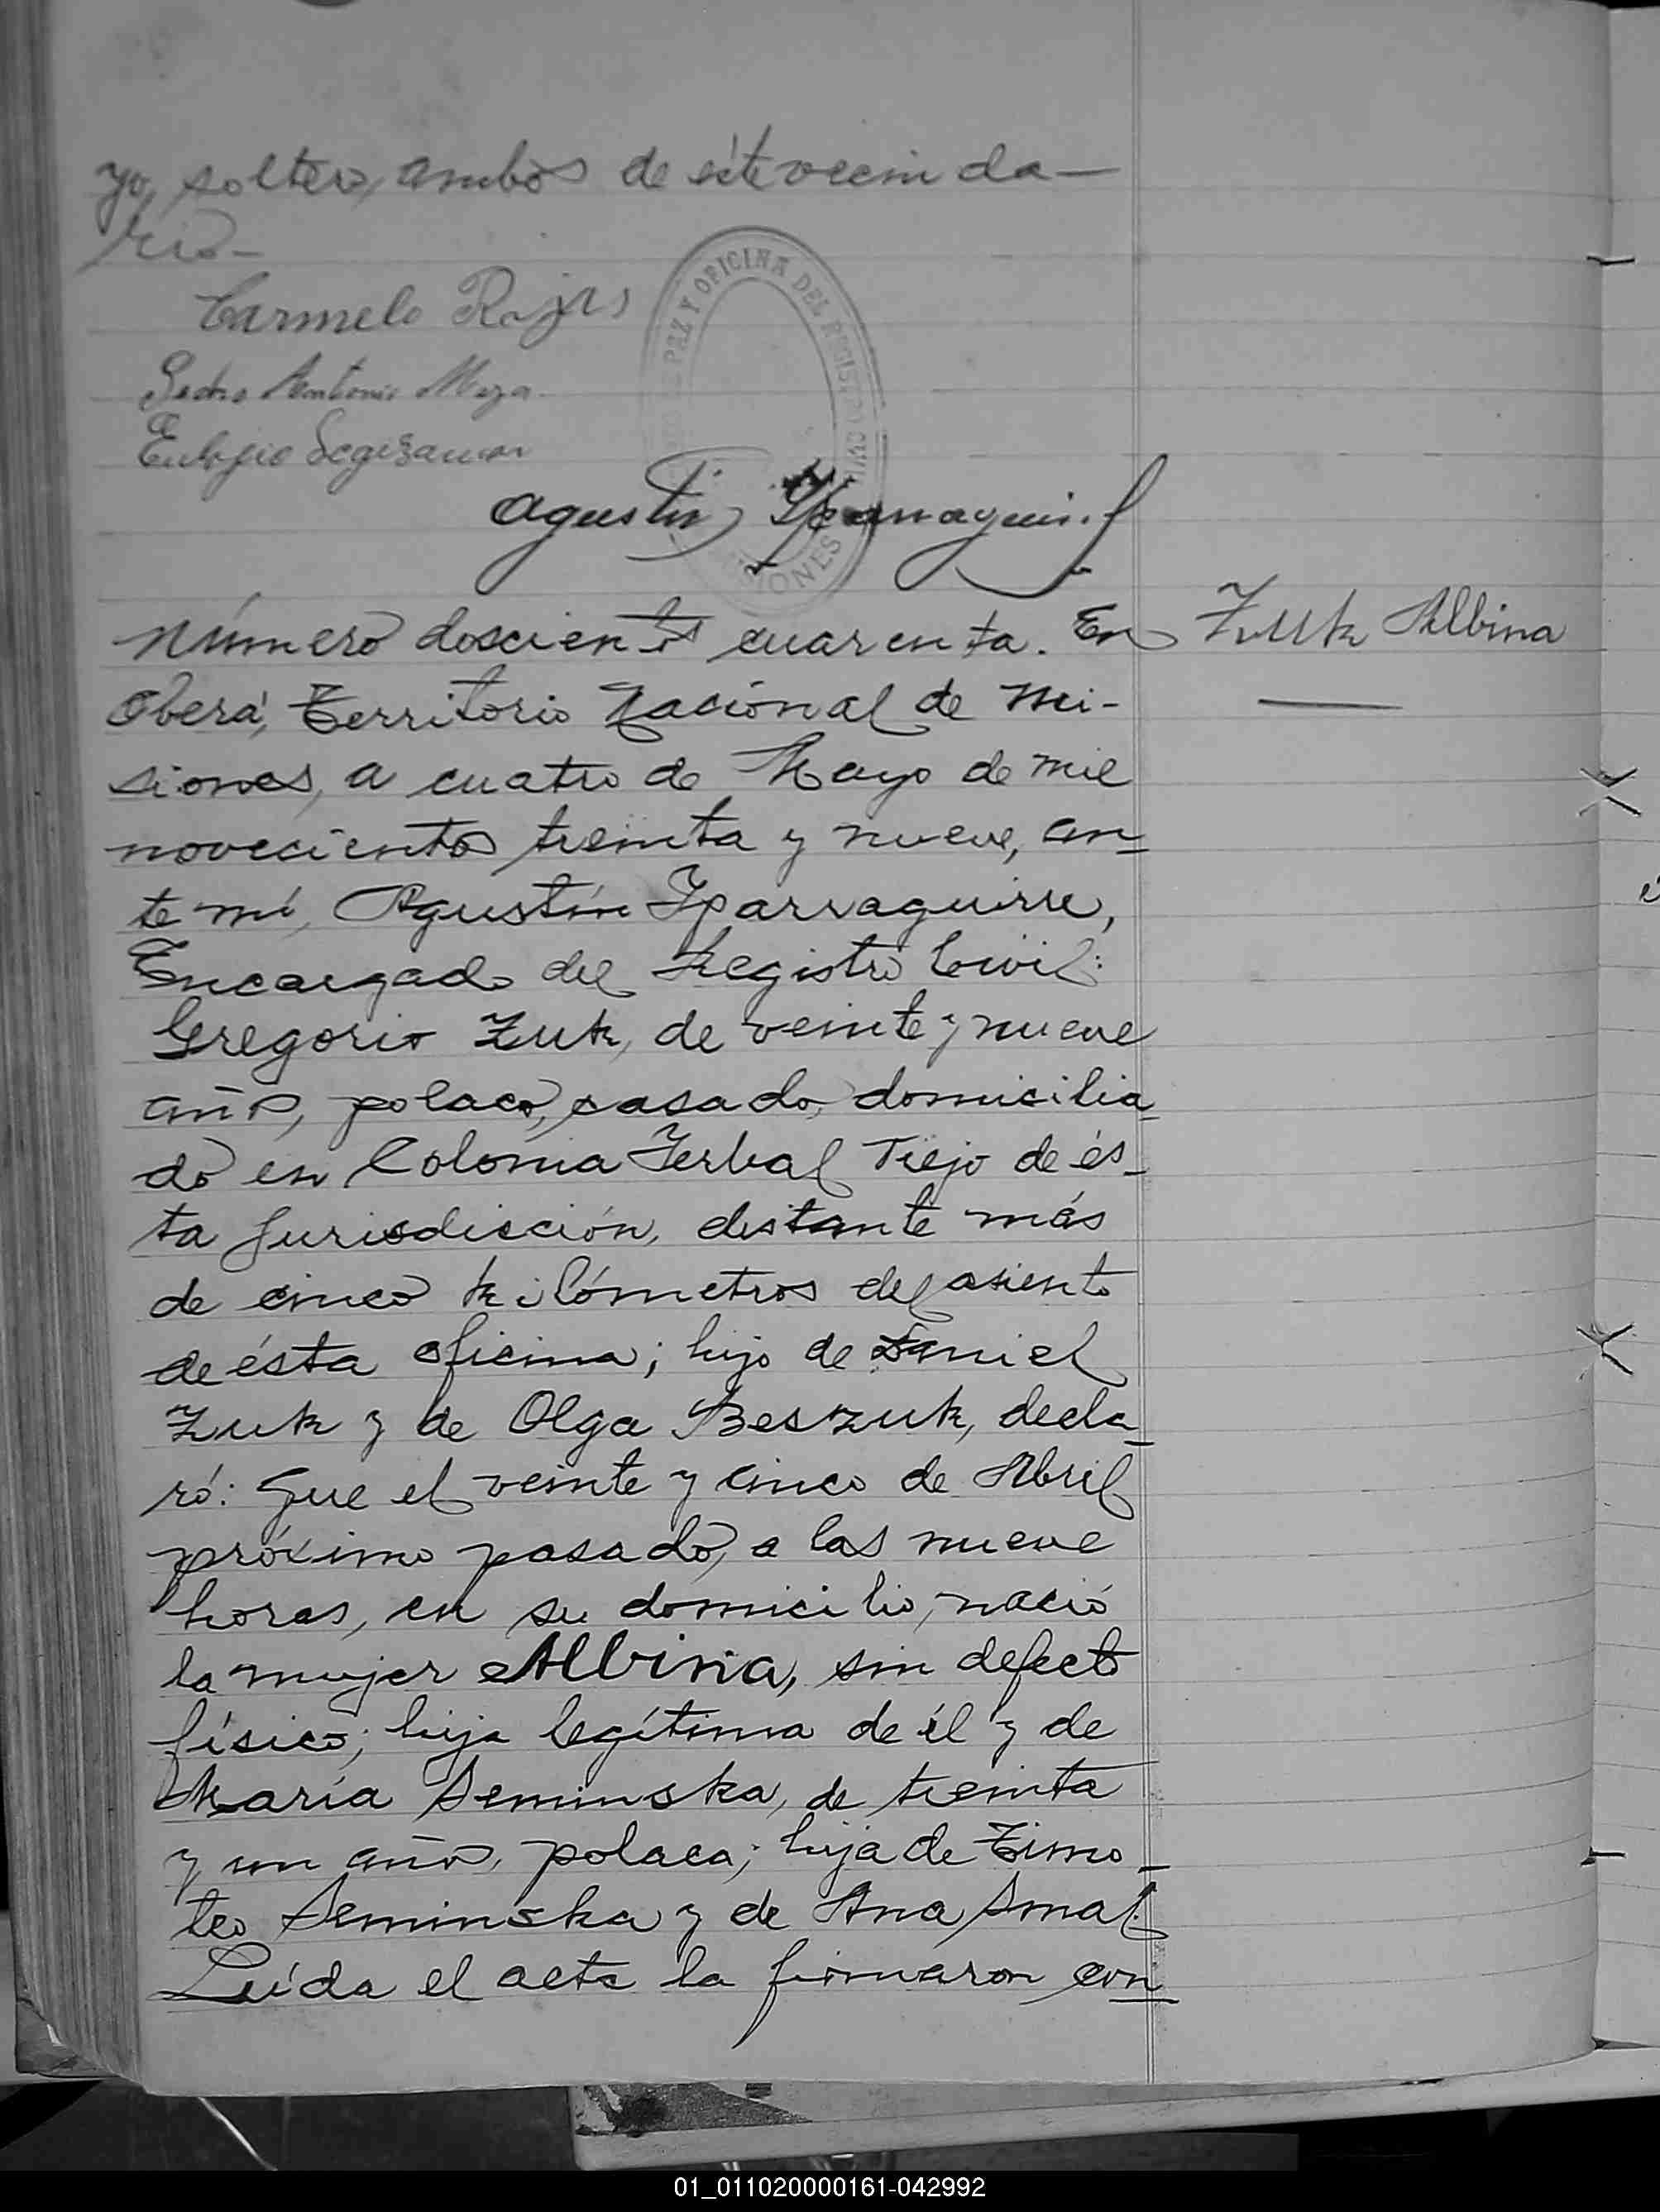 yo, soltero, ambos de éste vecinda-
rio-
Carmelo Rojas
Pedro Antonio Meza
Eulogio Leguizamon
PAZ Y OFICINA DEL REGISTRO CIVIL
MISIONES
Agustín Yparraguirre
Número doscientos cuarenta. En
Zuk Albina
Oberá, Territorio Nacional de Mi-
siones, a cuatro de Mayo de mil
novecientos treinta y nueve, an-
te mí, Agustín Yparraguirre,
Encargado del Registro Civil:
Gregorio Zuk, de veinte y nueve
años, polaco, casado, domicilia-
do en Colonia Yerbal Viejo de és-
ta Jurisdicción, distante más
de cinco kilómetros del asiento
de ésta oficina; hijo de Daniel
Zuk y de Olga Beszuk, decla-
ró: Que el veinte y cinco de Abril
próximo pasado, a las nueve
horas, en su domicilio, nació
la mujer Albina, sin defecto
físico; hija legítima de él y de
María Seminska, de treinta
y un años, polaca; hija de Timo-
teo Seminska y de Ana Smal.
Leída el acta la firmaron con-
01_011020000161-042992